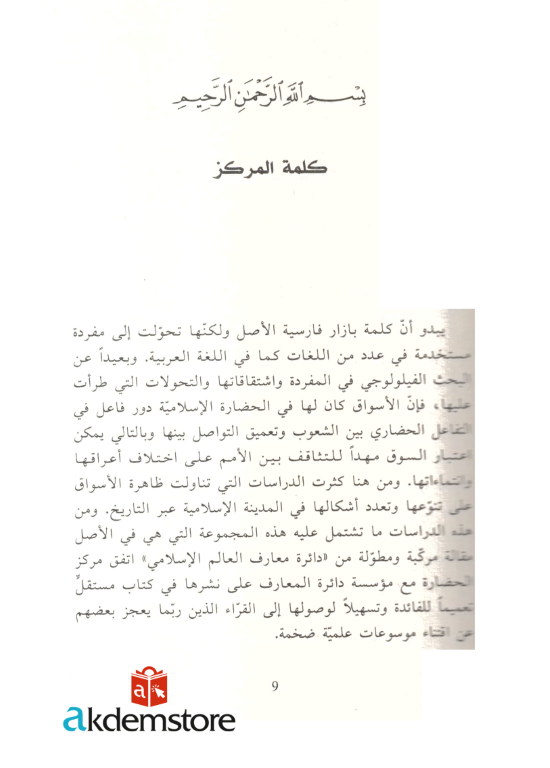 بِسْمِ اللَّهِ الرَّحْمَٰنِ الرَّحِيمِ
كلمة المركز
يبدو أنّ كلمة بازار فارسية الأصل ولكنّها تحوّلت إلى مفردة
مستخدمة في عدد من اللغات كما في اللغة العربية. وبعيداً عن
البحث الفيلولوجي في المفردة واشتقاقاتها والتحولات التي طرأت
عليها، فإنّ الأسواق كان لها في الحضارة الإسلاميّة دور فاعل في
التفاعل الحضاري بين الشعوب وتعميق التواصل بينها وبالتالي يمكن
اعتبار السوق مهداً للتثاقف بين الأمم على اختلاف أعراقها
وانتماءاتها. ومن هنا كثرت الدراسات التي تناولت ظاهرة الأسواق
على تنوّعها وتعدد أشكالها في المدينة الإسلامية عبر التاريخ. ومن
هذه الدراسات ما تشتمل عليه هذه المجموعة التي هي في الأصل
مقالة مركّبة ومطوّلة من «دائرة معارف العالم الإسلامي» اتفق مركز
الحضارة مع مؤسسة دائرة المعارف على نشرها في كتاب مستقلٍّ
تعميماً للفائدة وتسهيلاً لوصولها إلى القرّاء الذين ربّما يعجز بعضهم
عن اقتناء موسوعات علميّة ضخمة.
9
a
akdemstore